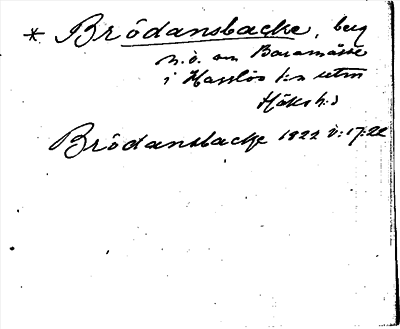 * Brödansbacke, berg
n.ö. om Baramåsse
i Hasslös s:n utm
Höks h:d
Brödansbacke 1822 V: 17: 22